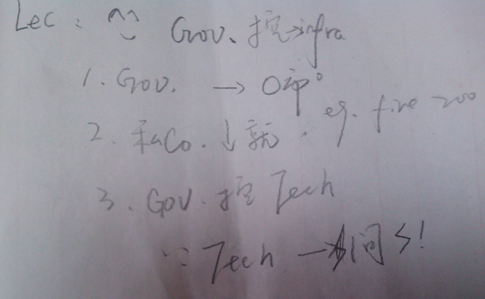 Lec: ^^ Gov. 控 infra
1. Gov. → O
2. 私Co. ↓就. eg. fire 200
3. Gov. 控 Tech
∵ Tech 一 问 !